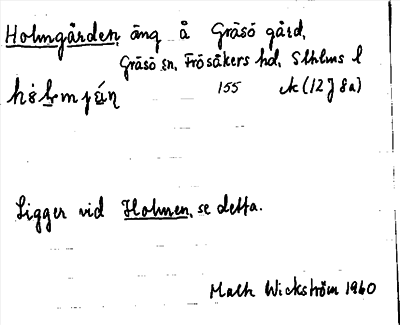 Holmgården, äng å Gräsö gård,
Gräsö sn, Frösåkers hd, Sthlms l
155 ek (12J8a)
Ligger vid Holmen, se detta.
Math Wickström 1960